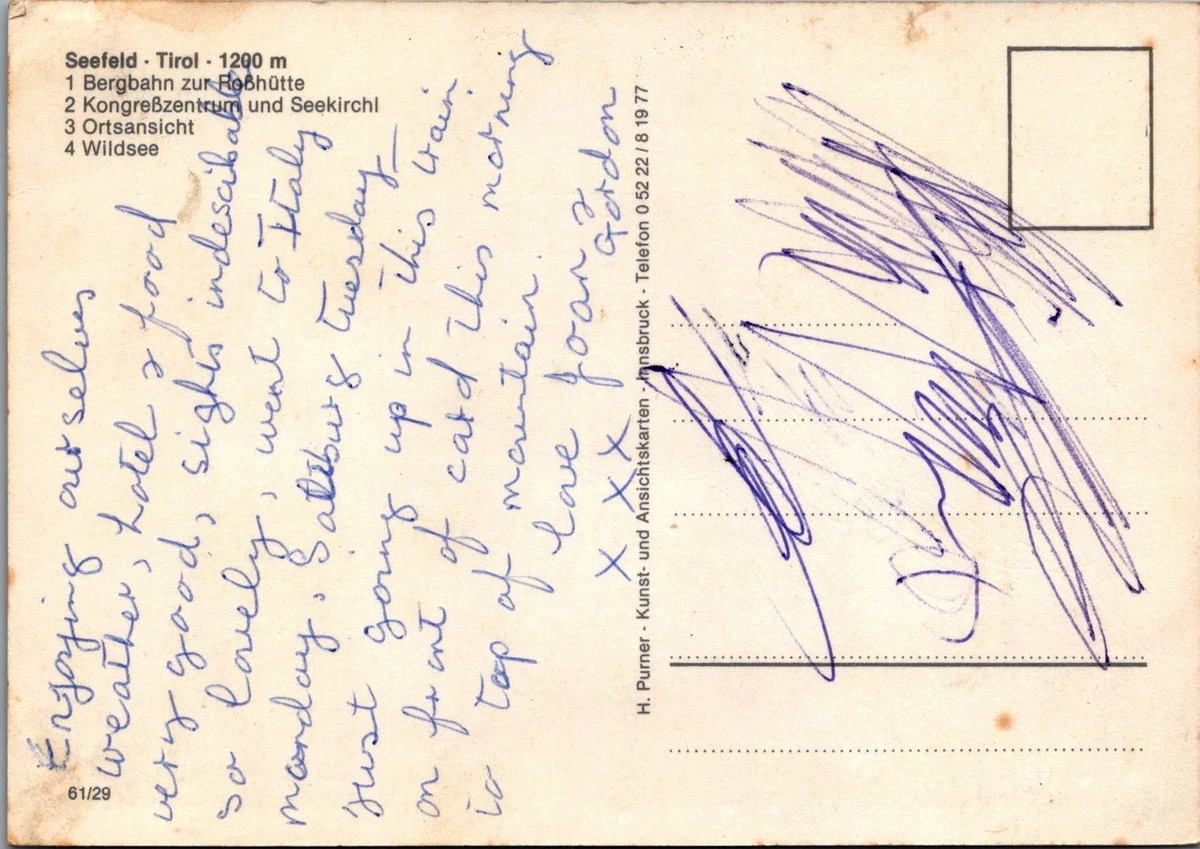 Seefeld · Tirol · 1200 m
1 Bergbahn zur Roßhütte
2 Kongreßzentrum und Seekirchl
3 Ortsansicht
4 Wildsee
Enjoying ourselves
weather, hotel & food
very good, sights indescibable
so lovely, went to Italy
monday, Saltburg Tuesday
Just going up in this train
on front of card this morning
to top of mountain.
love Joan &
Gordon
X X X
H. Purner - Kunst- und Ansichtskarten - Innsbruck - Telefon 0 52 22 / 8 19 77
61/29